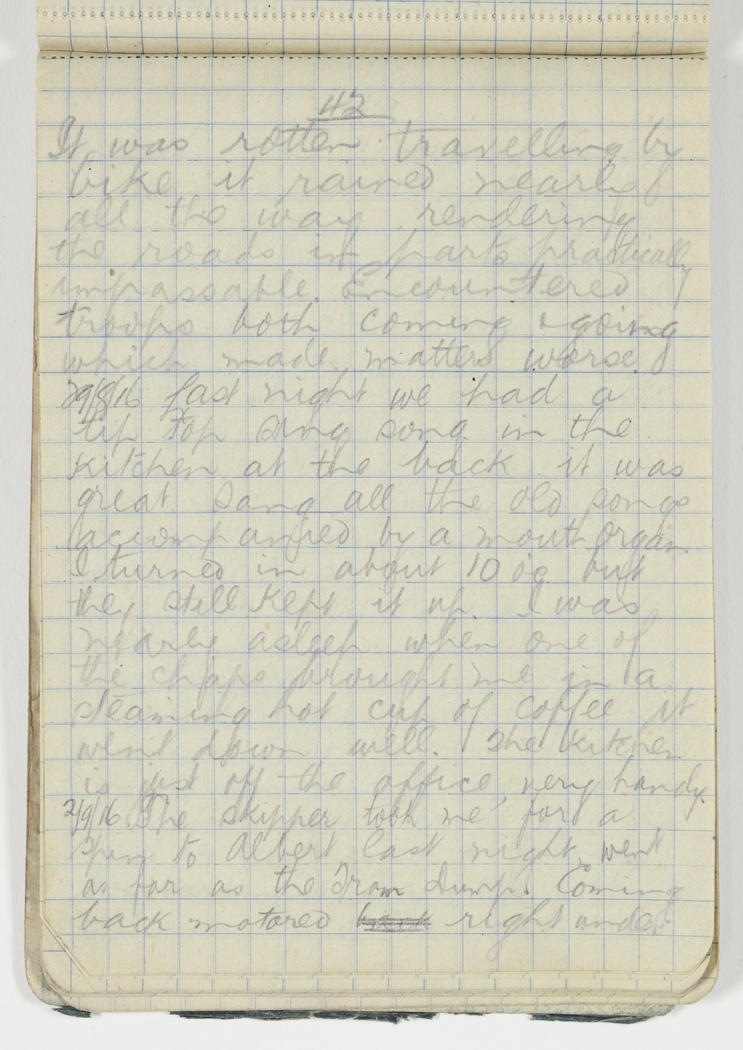 42
It was rotten travelling by
bike it rained nearly
all the way rendering
the roads in parts practically
impassable. Encountered
troops both coming & going
which made matters worse
29/8/16 Last night we had a
tip top sing song in the
kitchen at the back it was
great sang all the old songs
accompanied by a mouth organ.
I turned in about 10 oc but
they still kept it up. I was
nearly asleep when one of
the chaps brought me in a
steaming hot cup of coffee it
went down well. The kitchen
is just off the office, very handy.
2/9/16 The skipper took me for a
spin to Albert last night, went
as far as the Tram dump. Coming
back motored back right under